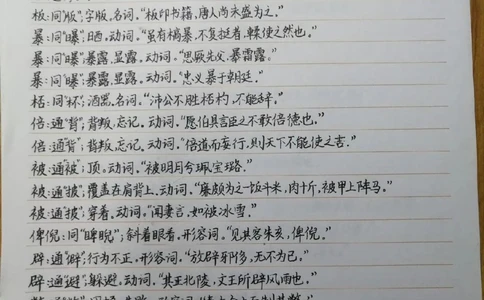 板:同"版";字版,名词。"板印书籍,唐人尚未盛为之。"
暴:同"曝";晒,动词。"虽有槁暴,不复挺者,輮使之然也。"
暴:同"曝";暴露,显露,动词。"思厥先父,暴霜露。"
暴:同"曝";暴露,显露,动词。"忠义暴于朝廷。"
杯:同"杯";酒器,名词。"沛公不胜桮杓,不能辞。"
倍:通"背";背叛,忘记,动词。"愿伯具言臣之不敢倍德也。"
倍:通"背";背叛,忘记,动词。"倍道而妄行,则天下不能使之吉。"
被:通"披";顶。动词。"被明月兮珮宝璐。"
被:通"披";覆盖在肩背上,动词。"廉颇为之一饭斗米,肉十斤,被甲上阵马。"
被:通"披";穿着,动词。"闻妻言,如被冰雪。"
俾倪:同"睥睨";斜着眼看,形容词。"见其客朱亥,俾倪。"
辟:通"僻";行为不正,形容词。"放辟邪侈,无不为己。"
辟:通"避";躲避,动词。"其北陵,文王所辟风雨也。"